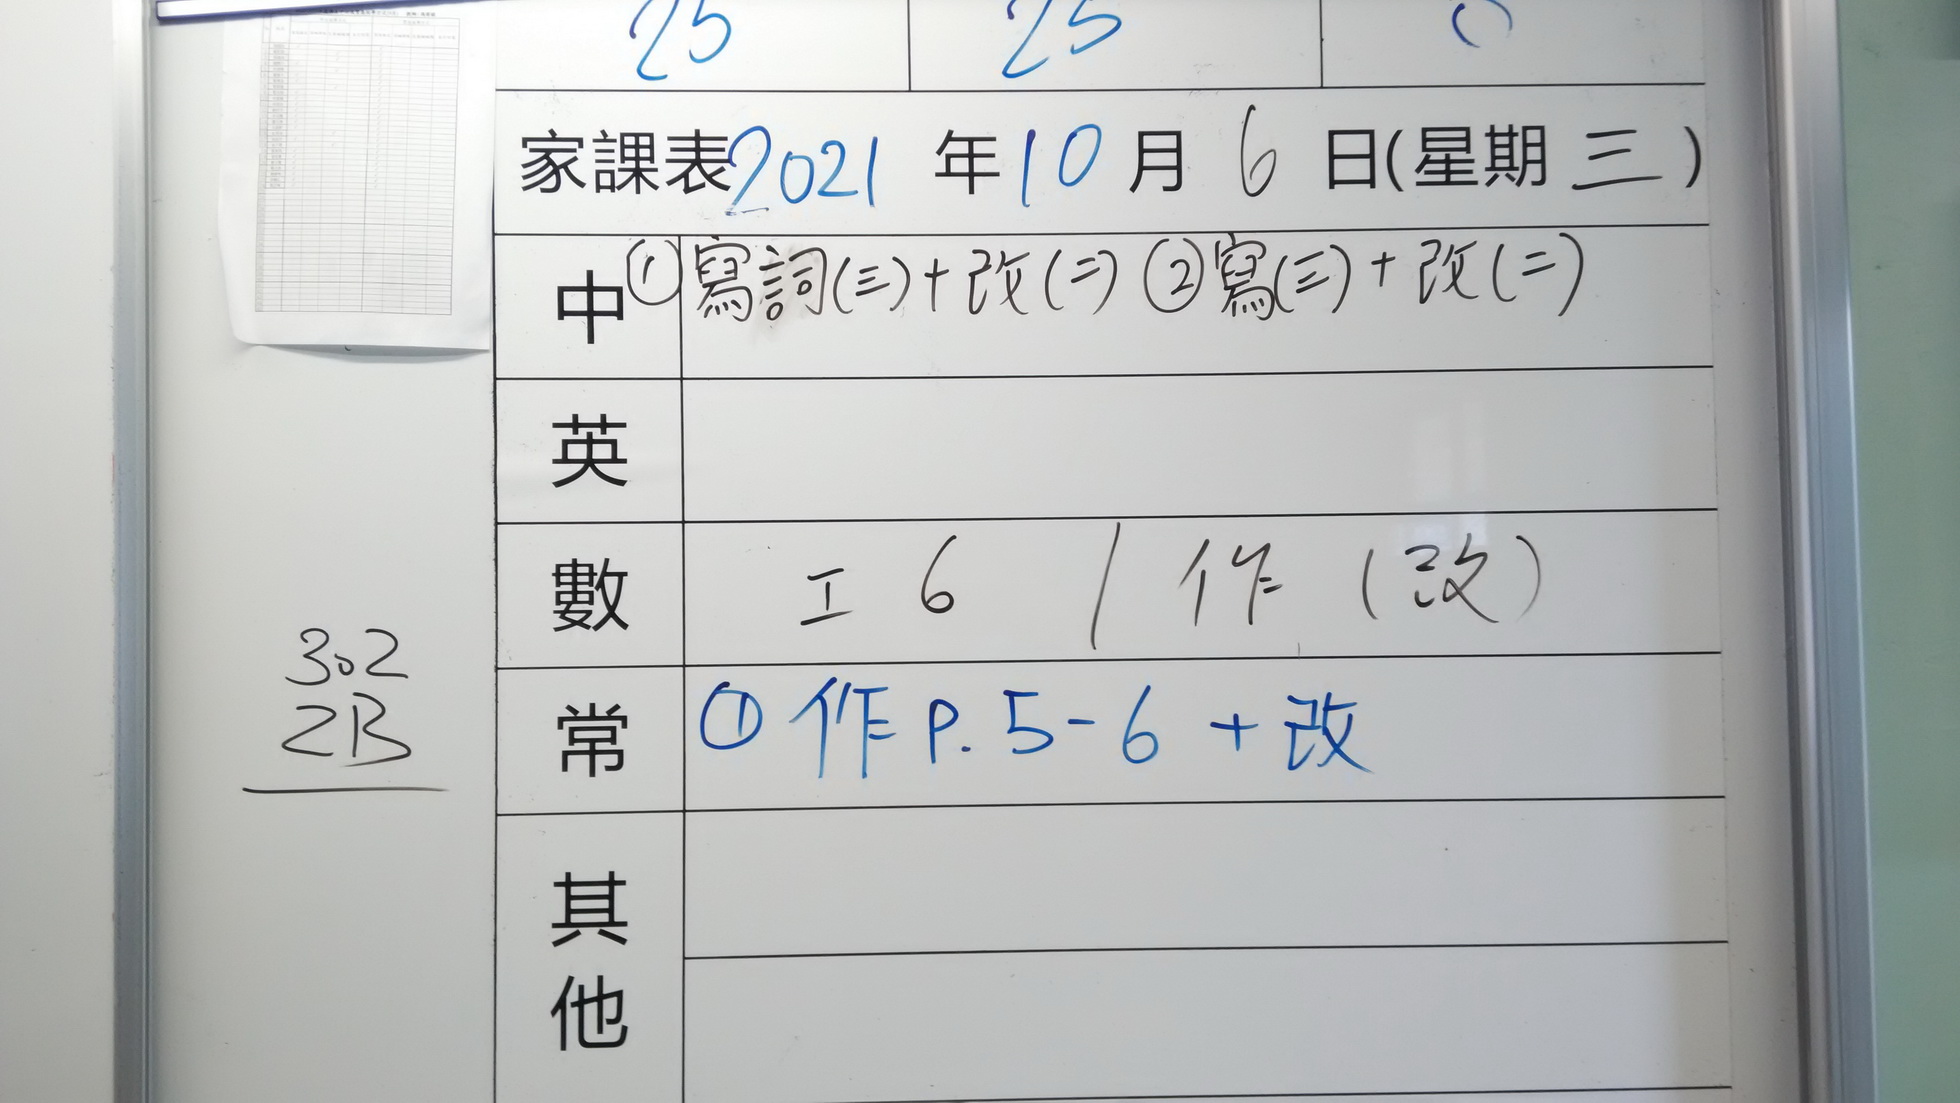 25 25
家課表2021年10月6日(星期三)
中 ①寫詞(三)+改(二) ②寫(三)+改(二)
英
數 工6 / 作(改)
常 ①作P.5-6+改
其他
302
2B